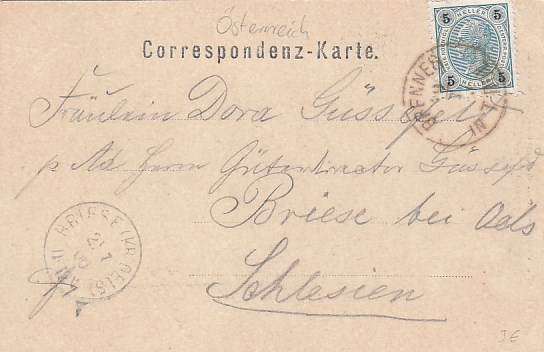 Österreich
Correspondenz-Karte.
5 5
HELLER
5 5
BRENNER IN TIROL
Fräulein Dora Güssefeld
p. Ad. Herrn Güterdirector Güssefeld
Briese bei Oels
Schlesien
BRIESE (KR. OELS)
3E